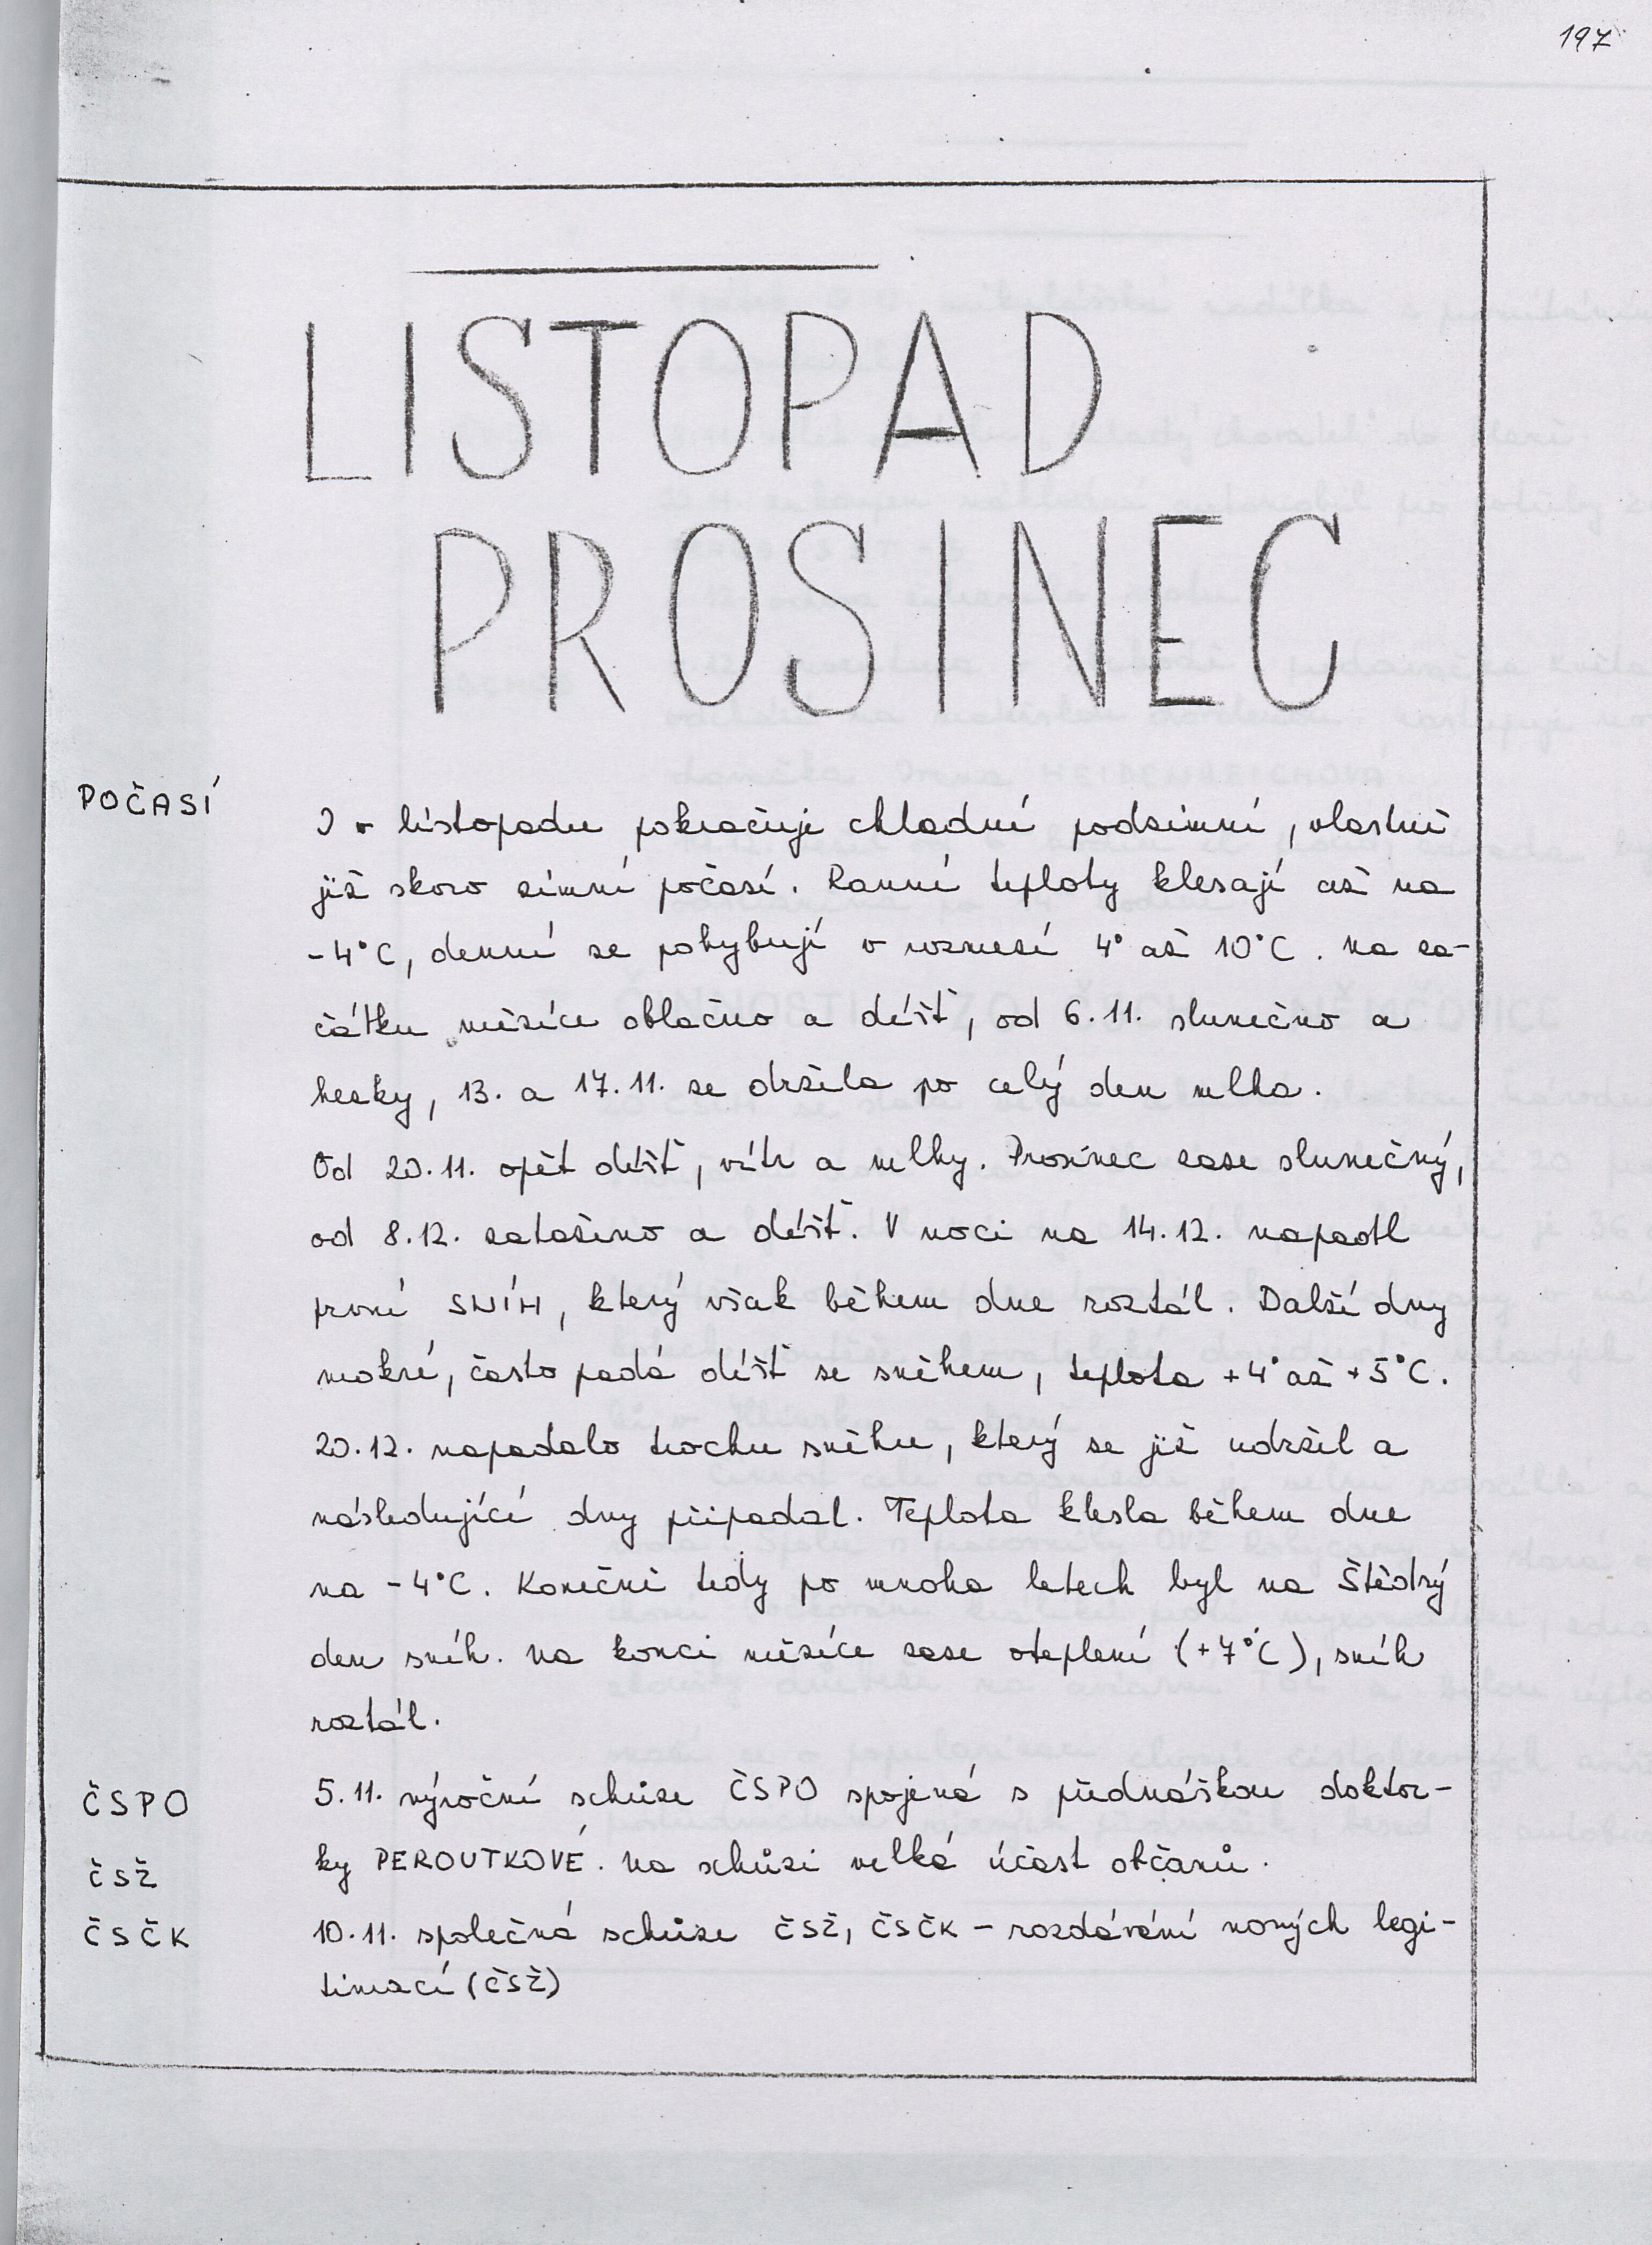 197
LISTOPAD
PROSINEC
POČASÍ
I v listopadu pokračuje chladné podzimní, vlastně
již skoro zimní počasí. Ranní teploty klesají až na
-4°C, denní se pohybují v rozmezí 4° až 10°C. Na za-
čátku měsíce oblačno a déšť, od 6.11. slunečno a
hezky, 13. a 17.11. se držela po celý den mlha.
Od 20.11. opět déšť, vítr a mlhy. Prosinec zase slunečný,
od 8.12. zataženo a déšť. V noci na 14.12. napadl
první SNÍH, který však během dne roztál. Další dny
mokré, často padá déšť se sněhem, teplota +4° až +5°C.
20.12. napadalo trochu sněhu, který se již udržel a
následující dny připadal. Teplota klesla během dne
na -4°C. Konečně tedy po mnoha letech byl na Štědrý
den sníh. Na konci měsíce zase oteplení (+7°C), sníh
roztál.
ČSPO
5.11. výroční schůze ČSPO spojená s přednáškou doktor-
ky PEROUTKOVÉ. Na schůzi velká účast občanů.
ČSŽ
ČSČK
10.11. společná schůze ČSŽ, ČSČK - rozdávání nových legi-
timací (ČSŽ)